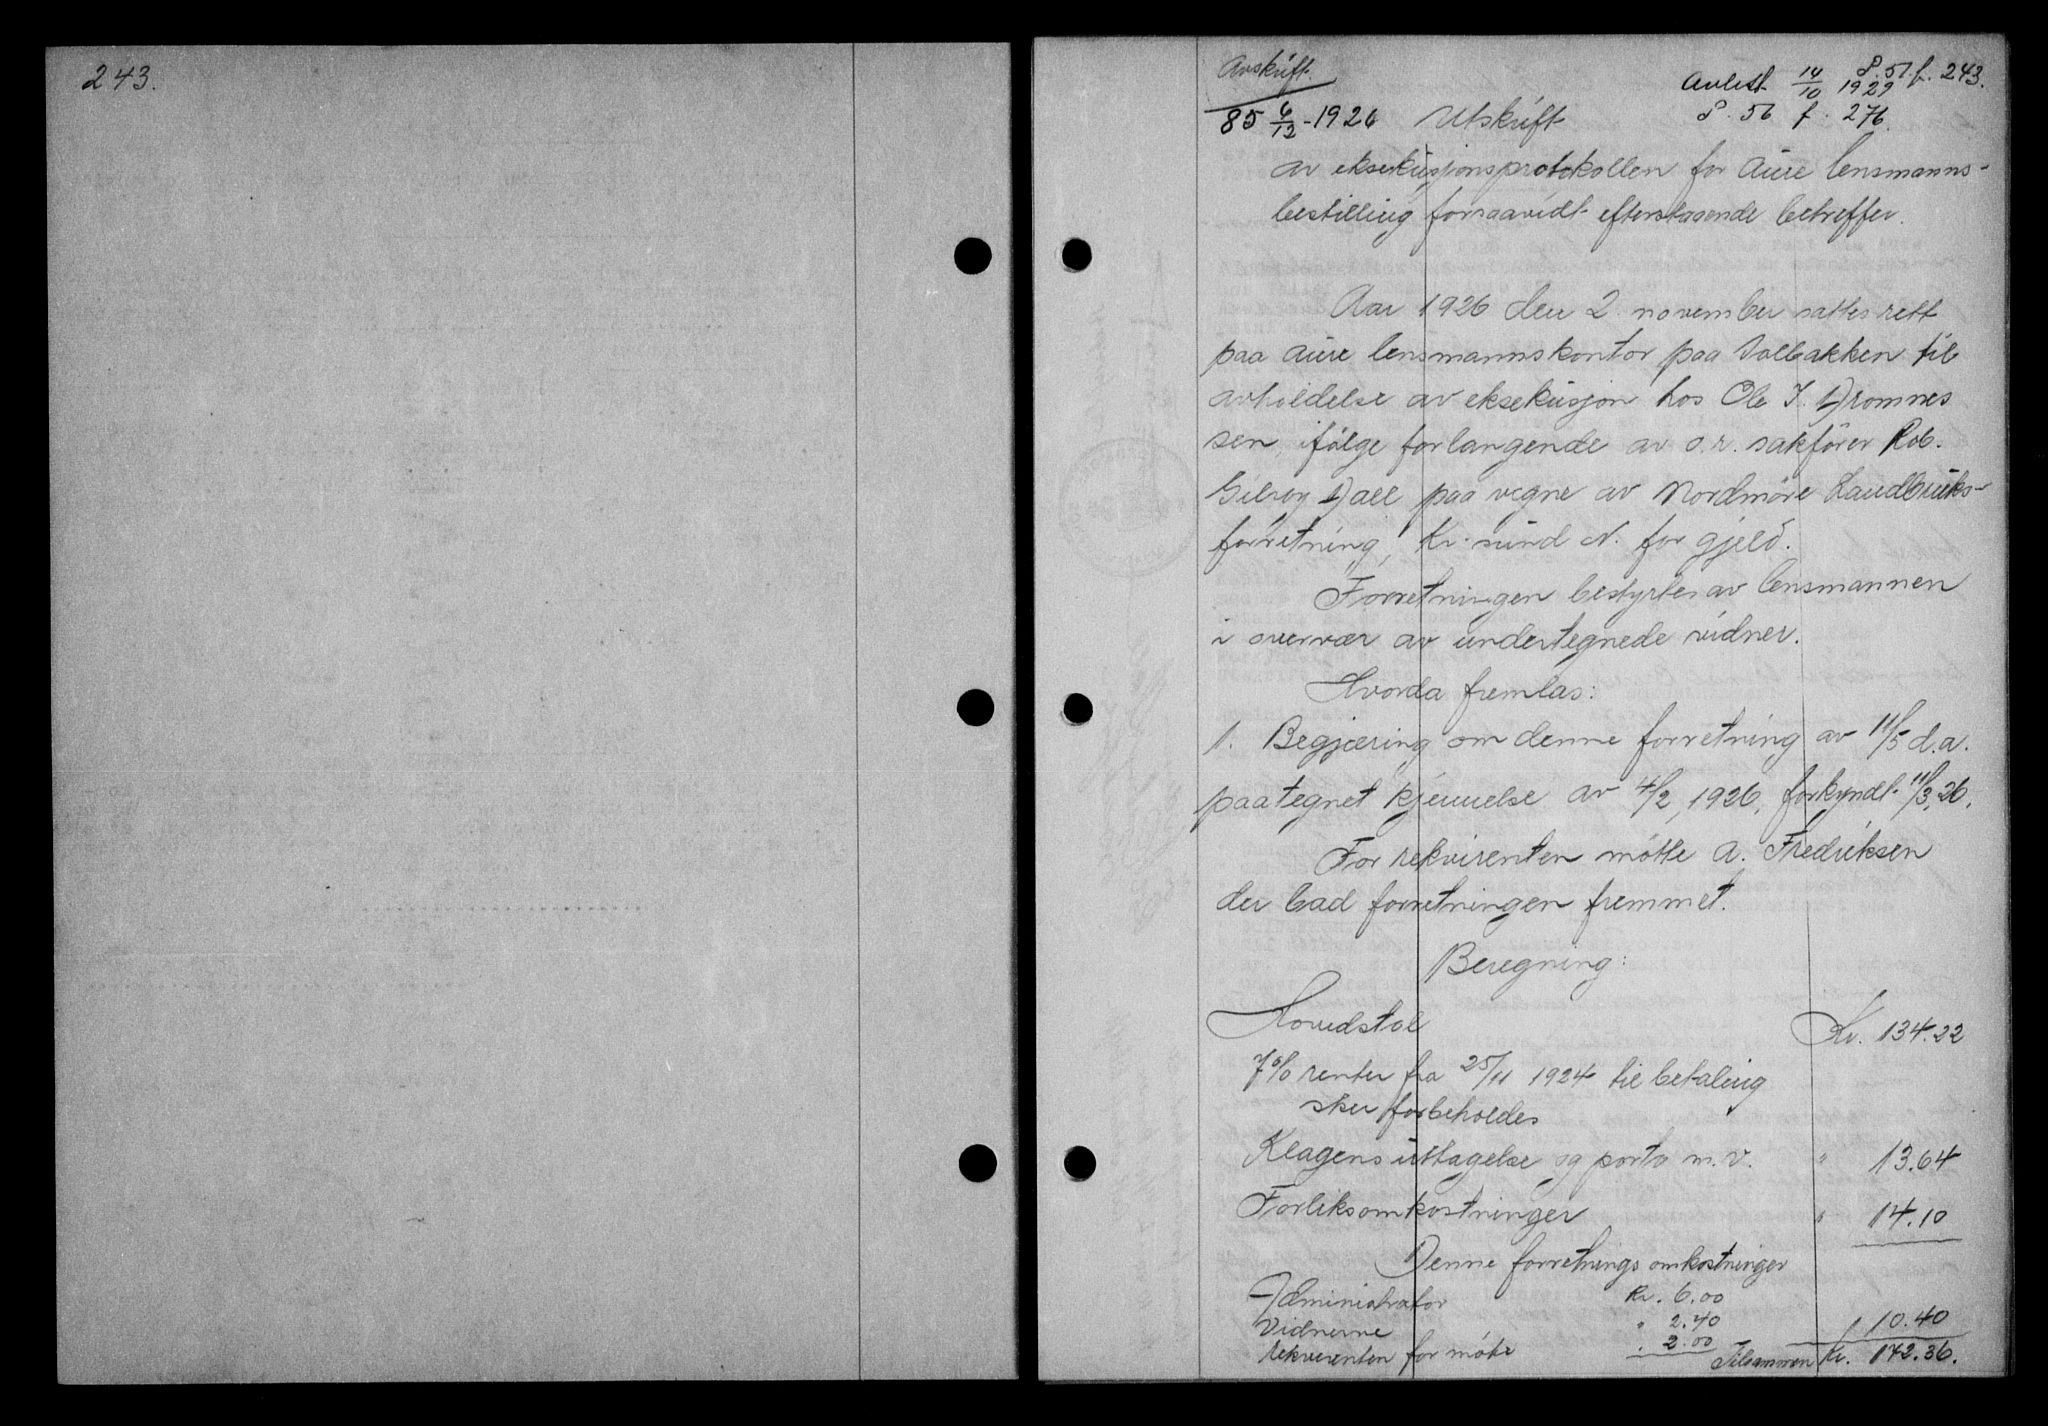 243.
Avskrift.
Avlest 14/10 1929 P. 57. f. 243.
85 6/12-1926 Utskrift P. 56 f. 276.
av eksekusjonsprotokollen for Aure lensmanns-
bestilling forsaavidt efterstaaende betreffer.
Aar 1926 den 2. november sattes rett
paa Aure lensmannskontor paa Solbakken til
avholdelse av eksekusjon hos Ole J. Dromnes
sen, ifölge forlangende av o.r. sakförer Rob.
Gilroy Dall paa vegne av Nordmöre Landbruks-
forretning, Kr. sund N. for gjeld.
Forretningen bestyrtes av lensmannen
i overvær av undertegnede vidner.
Hvorda fremlas:
1. Begjæring om denne forretning av 11/5 d.a.
paategnet kjennelse av 4/2, 1926, forkyndt 11/3, 26.
For rekvirenten mötte A. Fredriksen
der bad forretningen fremmet.
Beregning:
Hovedstol Kr. 134.22
7% renter fra 25/11 1924 til betaling
sker forbeholdes
Klagens uttagelse og porto m.v. " 13.64
Forliksomkostninger " 14.10
Denne forretnings omkostninger
Administrator Kr. 6.00
Vidnerne " 2.40 " 10.40
rekvirenten for möte " 2.00 Tilsammen Kr. 172.36.